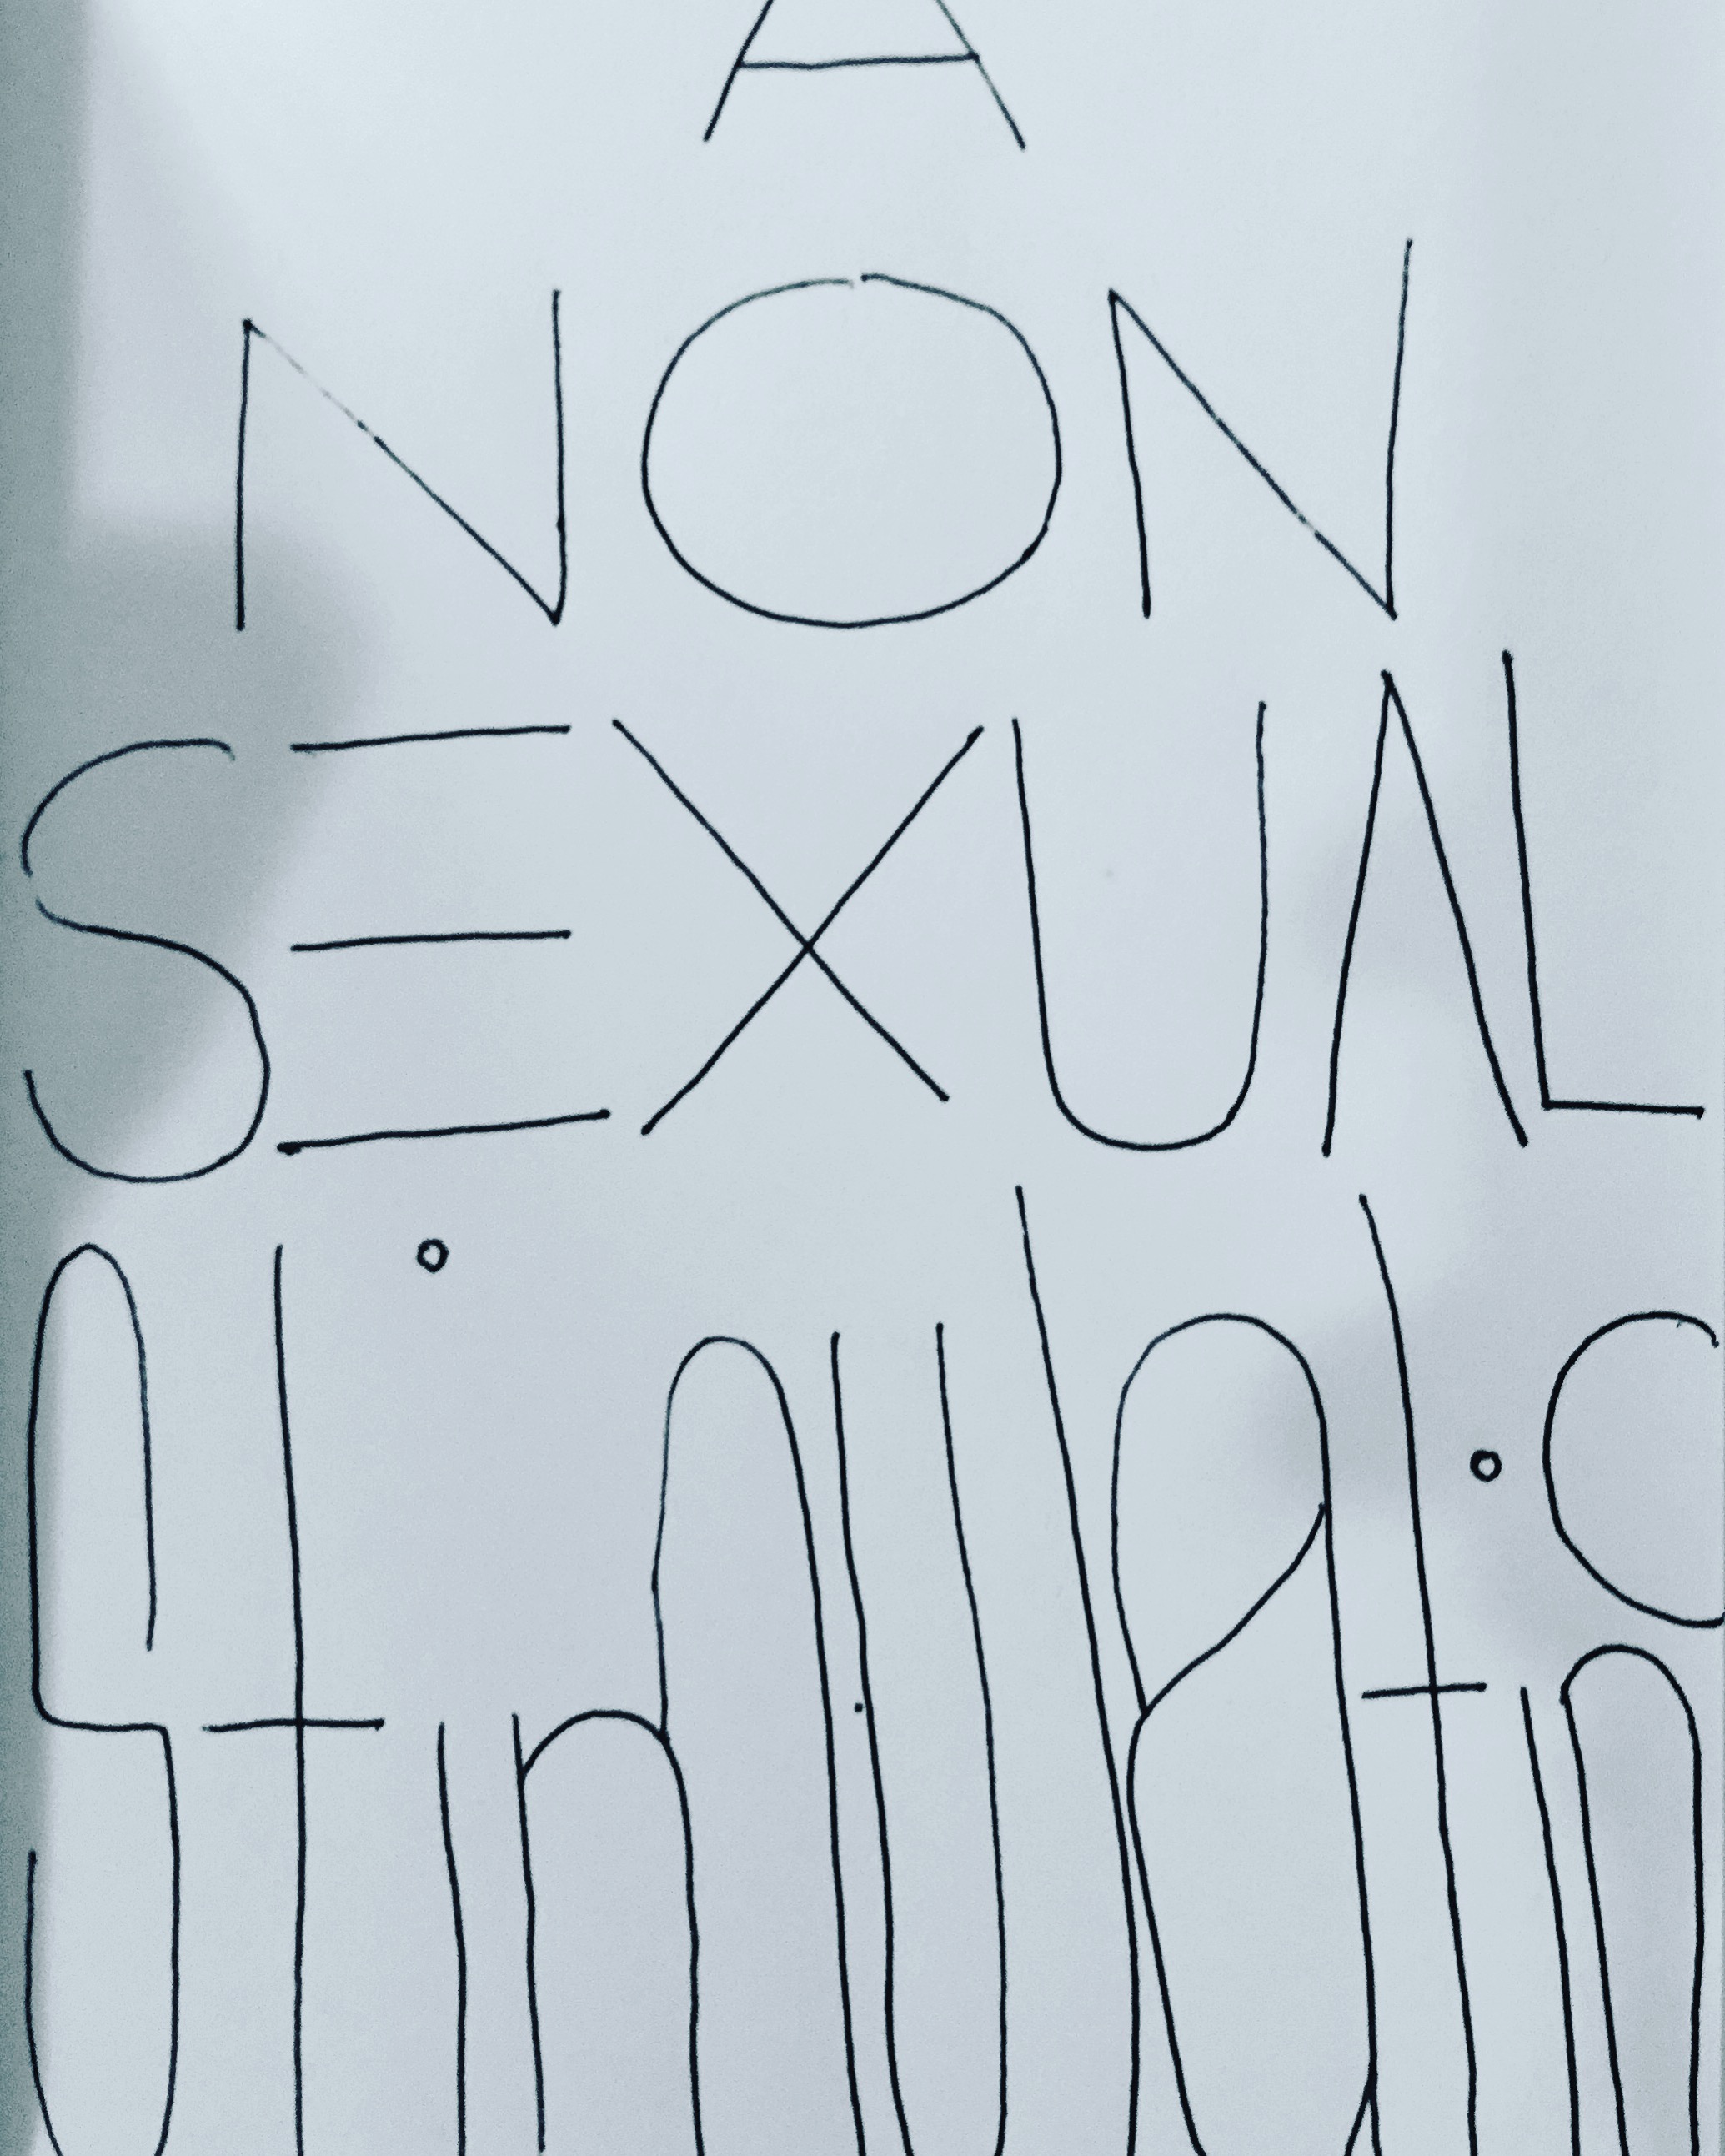 A
NON
SEXUAL
stimulation